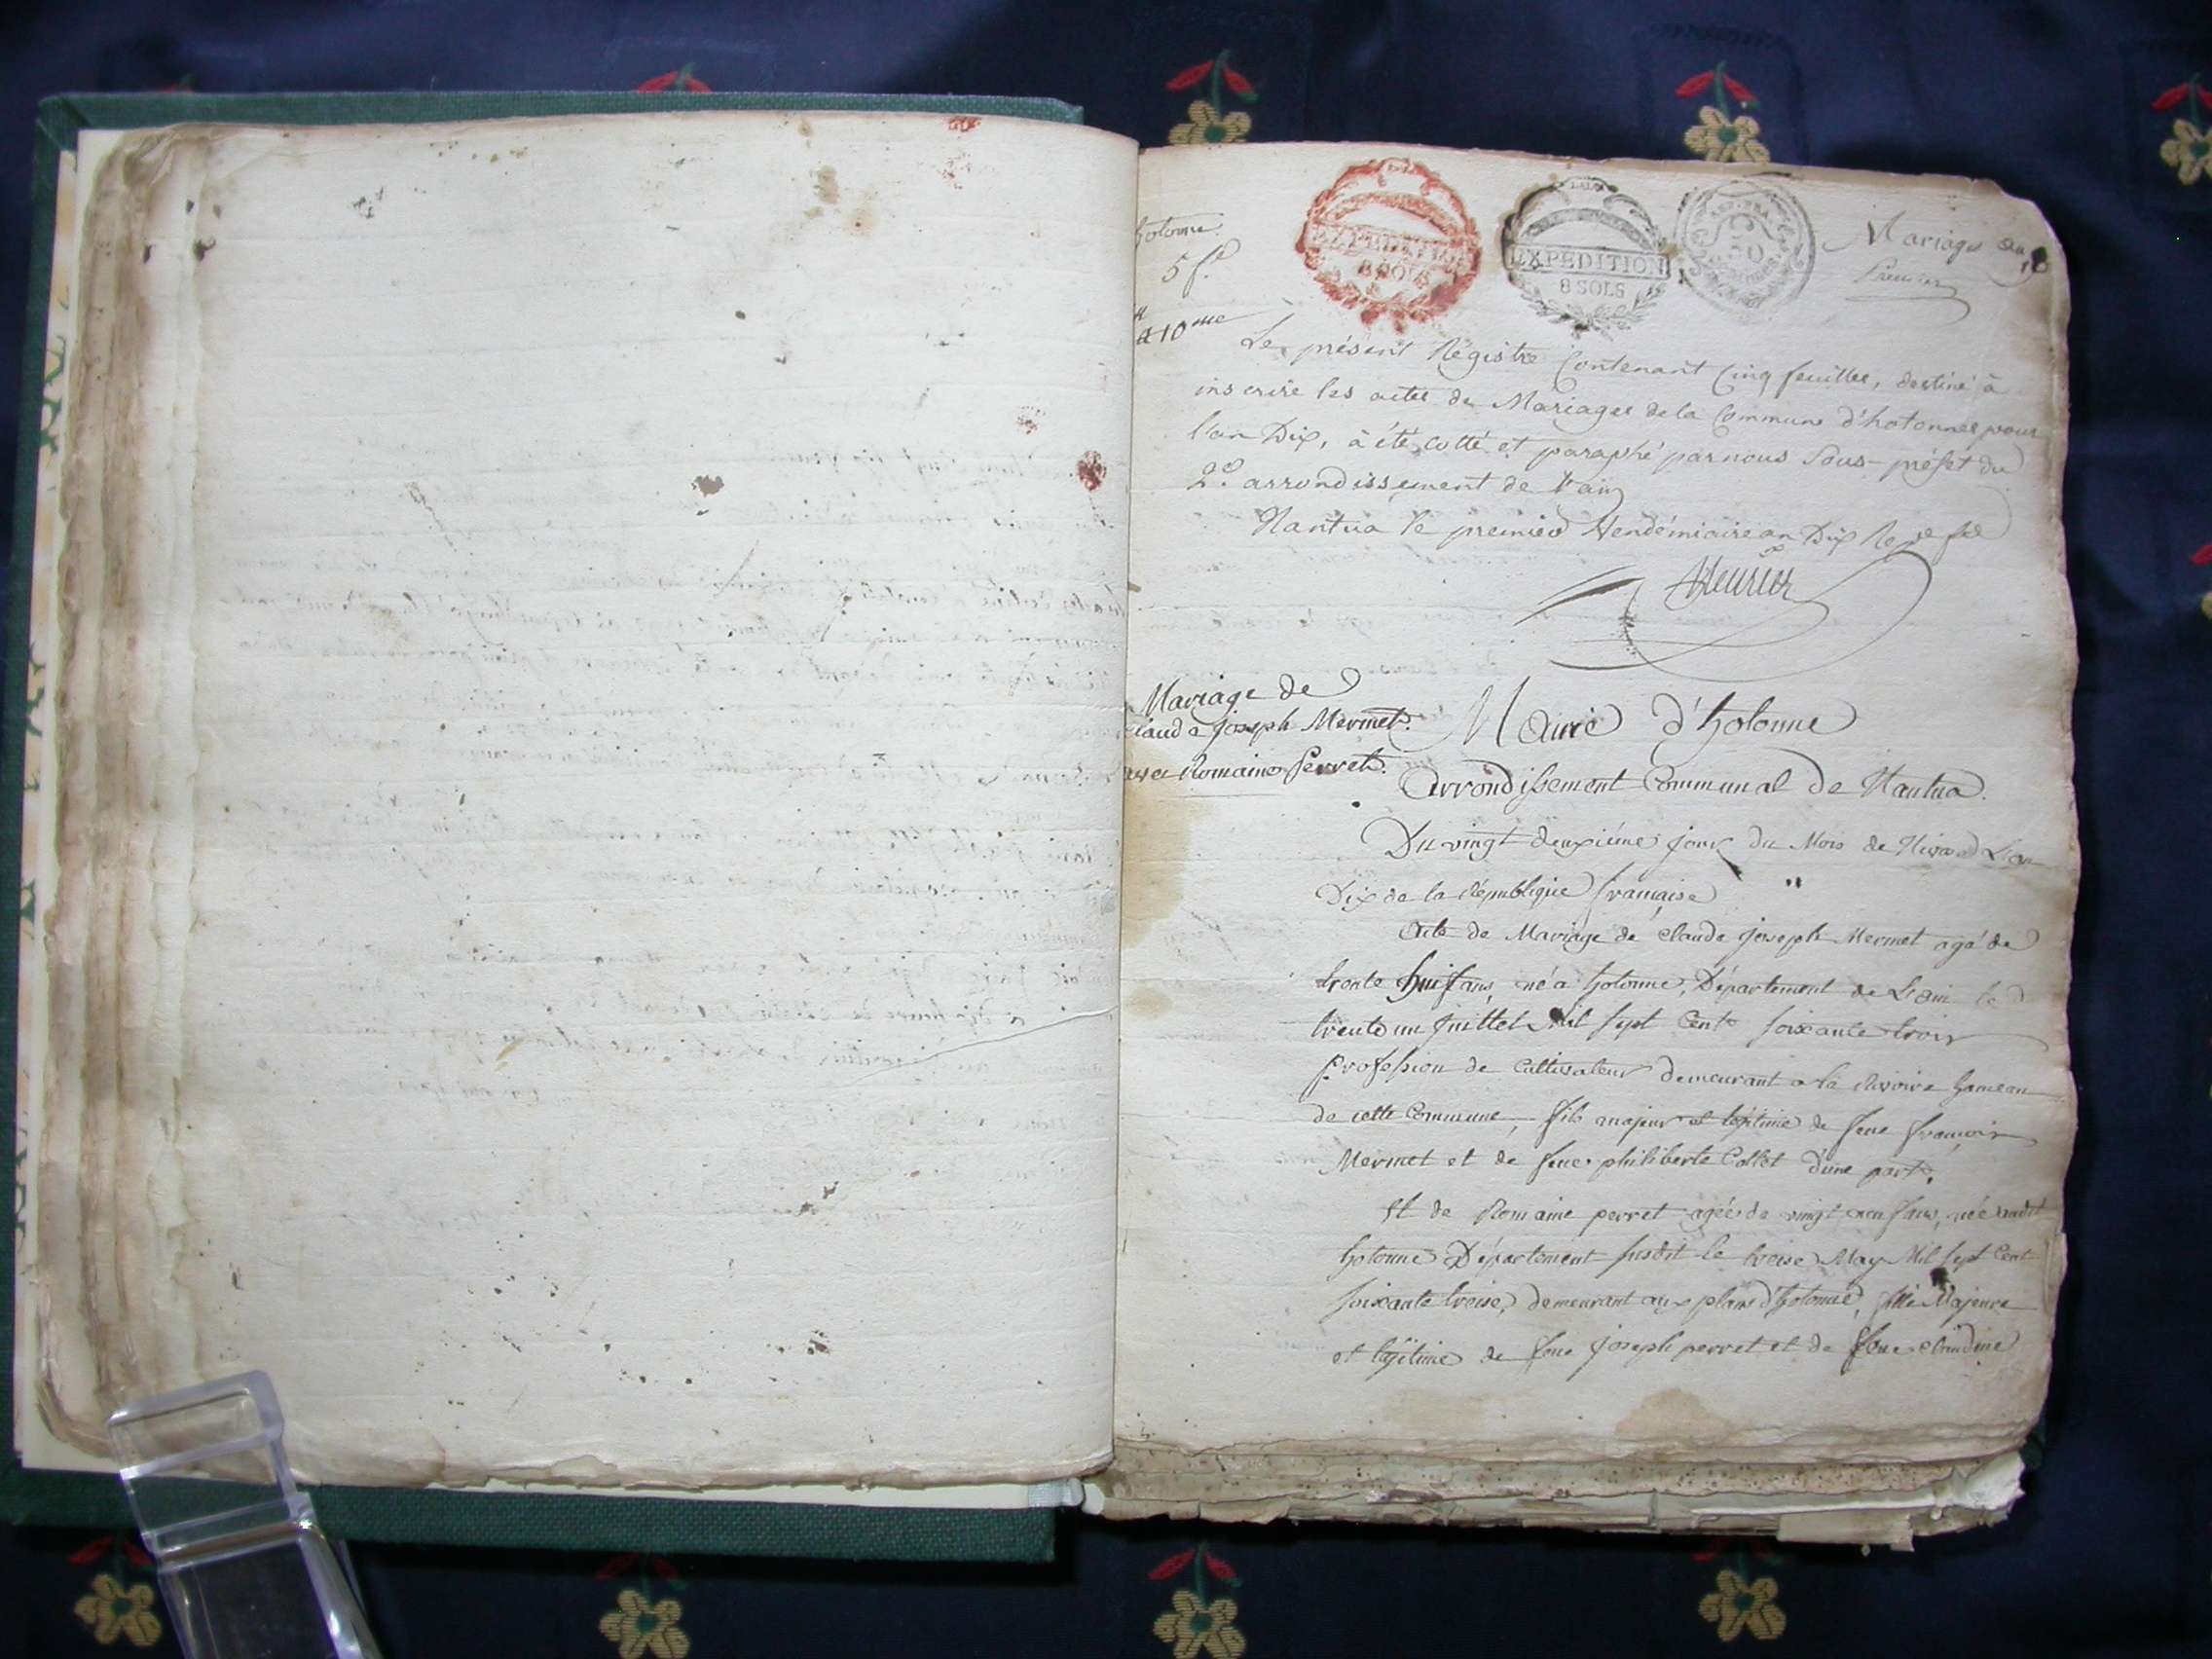 hotonne.
5 f.
a 10me
EXPEDITION
8 SOLS
EXPEDITION
8 SOLS
REP. FRA.
50
Mariages an
10
Premier
Le présent Régistre Contenant Cinq feuilles, destiné à
inscrire les actes de Mariages de la Commune d'hotonnes pour
l'an Dix, à été cotté et paraphé par nous Sous-préfet du
2e. arrondissement de l'ain
Nantua le premier Vendémiaire an Dix
Mariage de
Claude Joseph Mermet.
avec Romaine Perret.
Mairie d'hotonne
Arrondissement Communal de Nantua.
Du vingt deuxiéme jour du Mois de Nivose L'an
Dix de la République française
Acte de Mariage de Claude Joseph Mermet agé de
trente huit ans, né a hotonne, Département de L'ain le
trente un Juillet Mil sept Cent soixante trois
profession de Cultivateur demeurant a la Rivoire hameau
de cette Commune, fils majeur et légitime de feue françois
Mermet et de feue philiberte Collet d'une part,
Et de Romaine perret agée de vingt neuf ans, née audit
hotonne Département susdit le treise May Mil sept Cent
soixante treise, demeurant aux plans d'hotonne, fille Majeure
et légitime de feue Joseph perret et de feue claudine